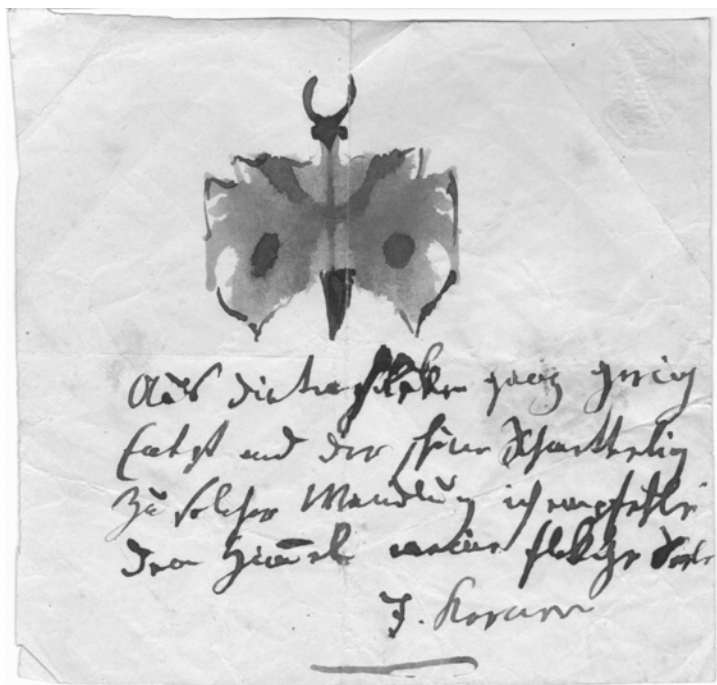 Aus Dintenfleken ganz gering
Entstand der schöne Schmetterling
Zu solcher Wandlung ich empfehle
Dem Himmel meine flekige Seele
J. Kerner